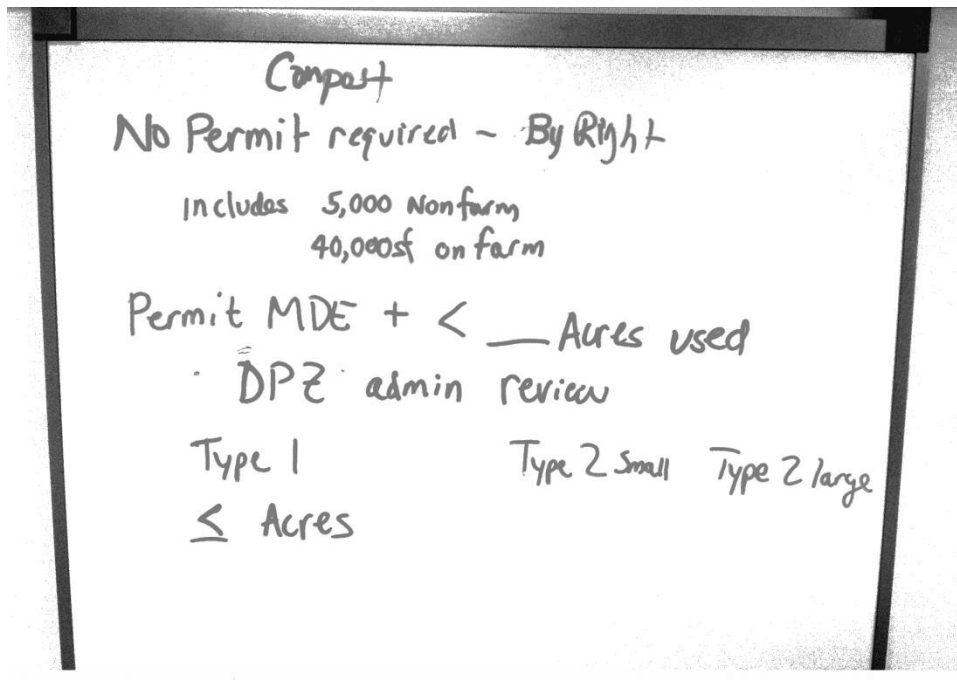 Compost
No Permit required - By Right
Includes 5,000 Nonfarm
40,000sf on farm
Permit MDE + < __ Acres used
DPZ admin review
Type 1 Type 2 Small Type 2 large
≤ Acres